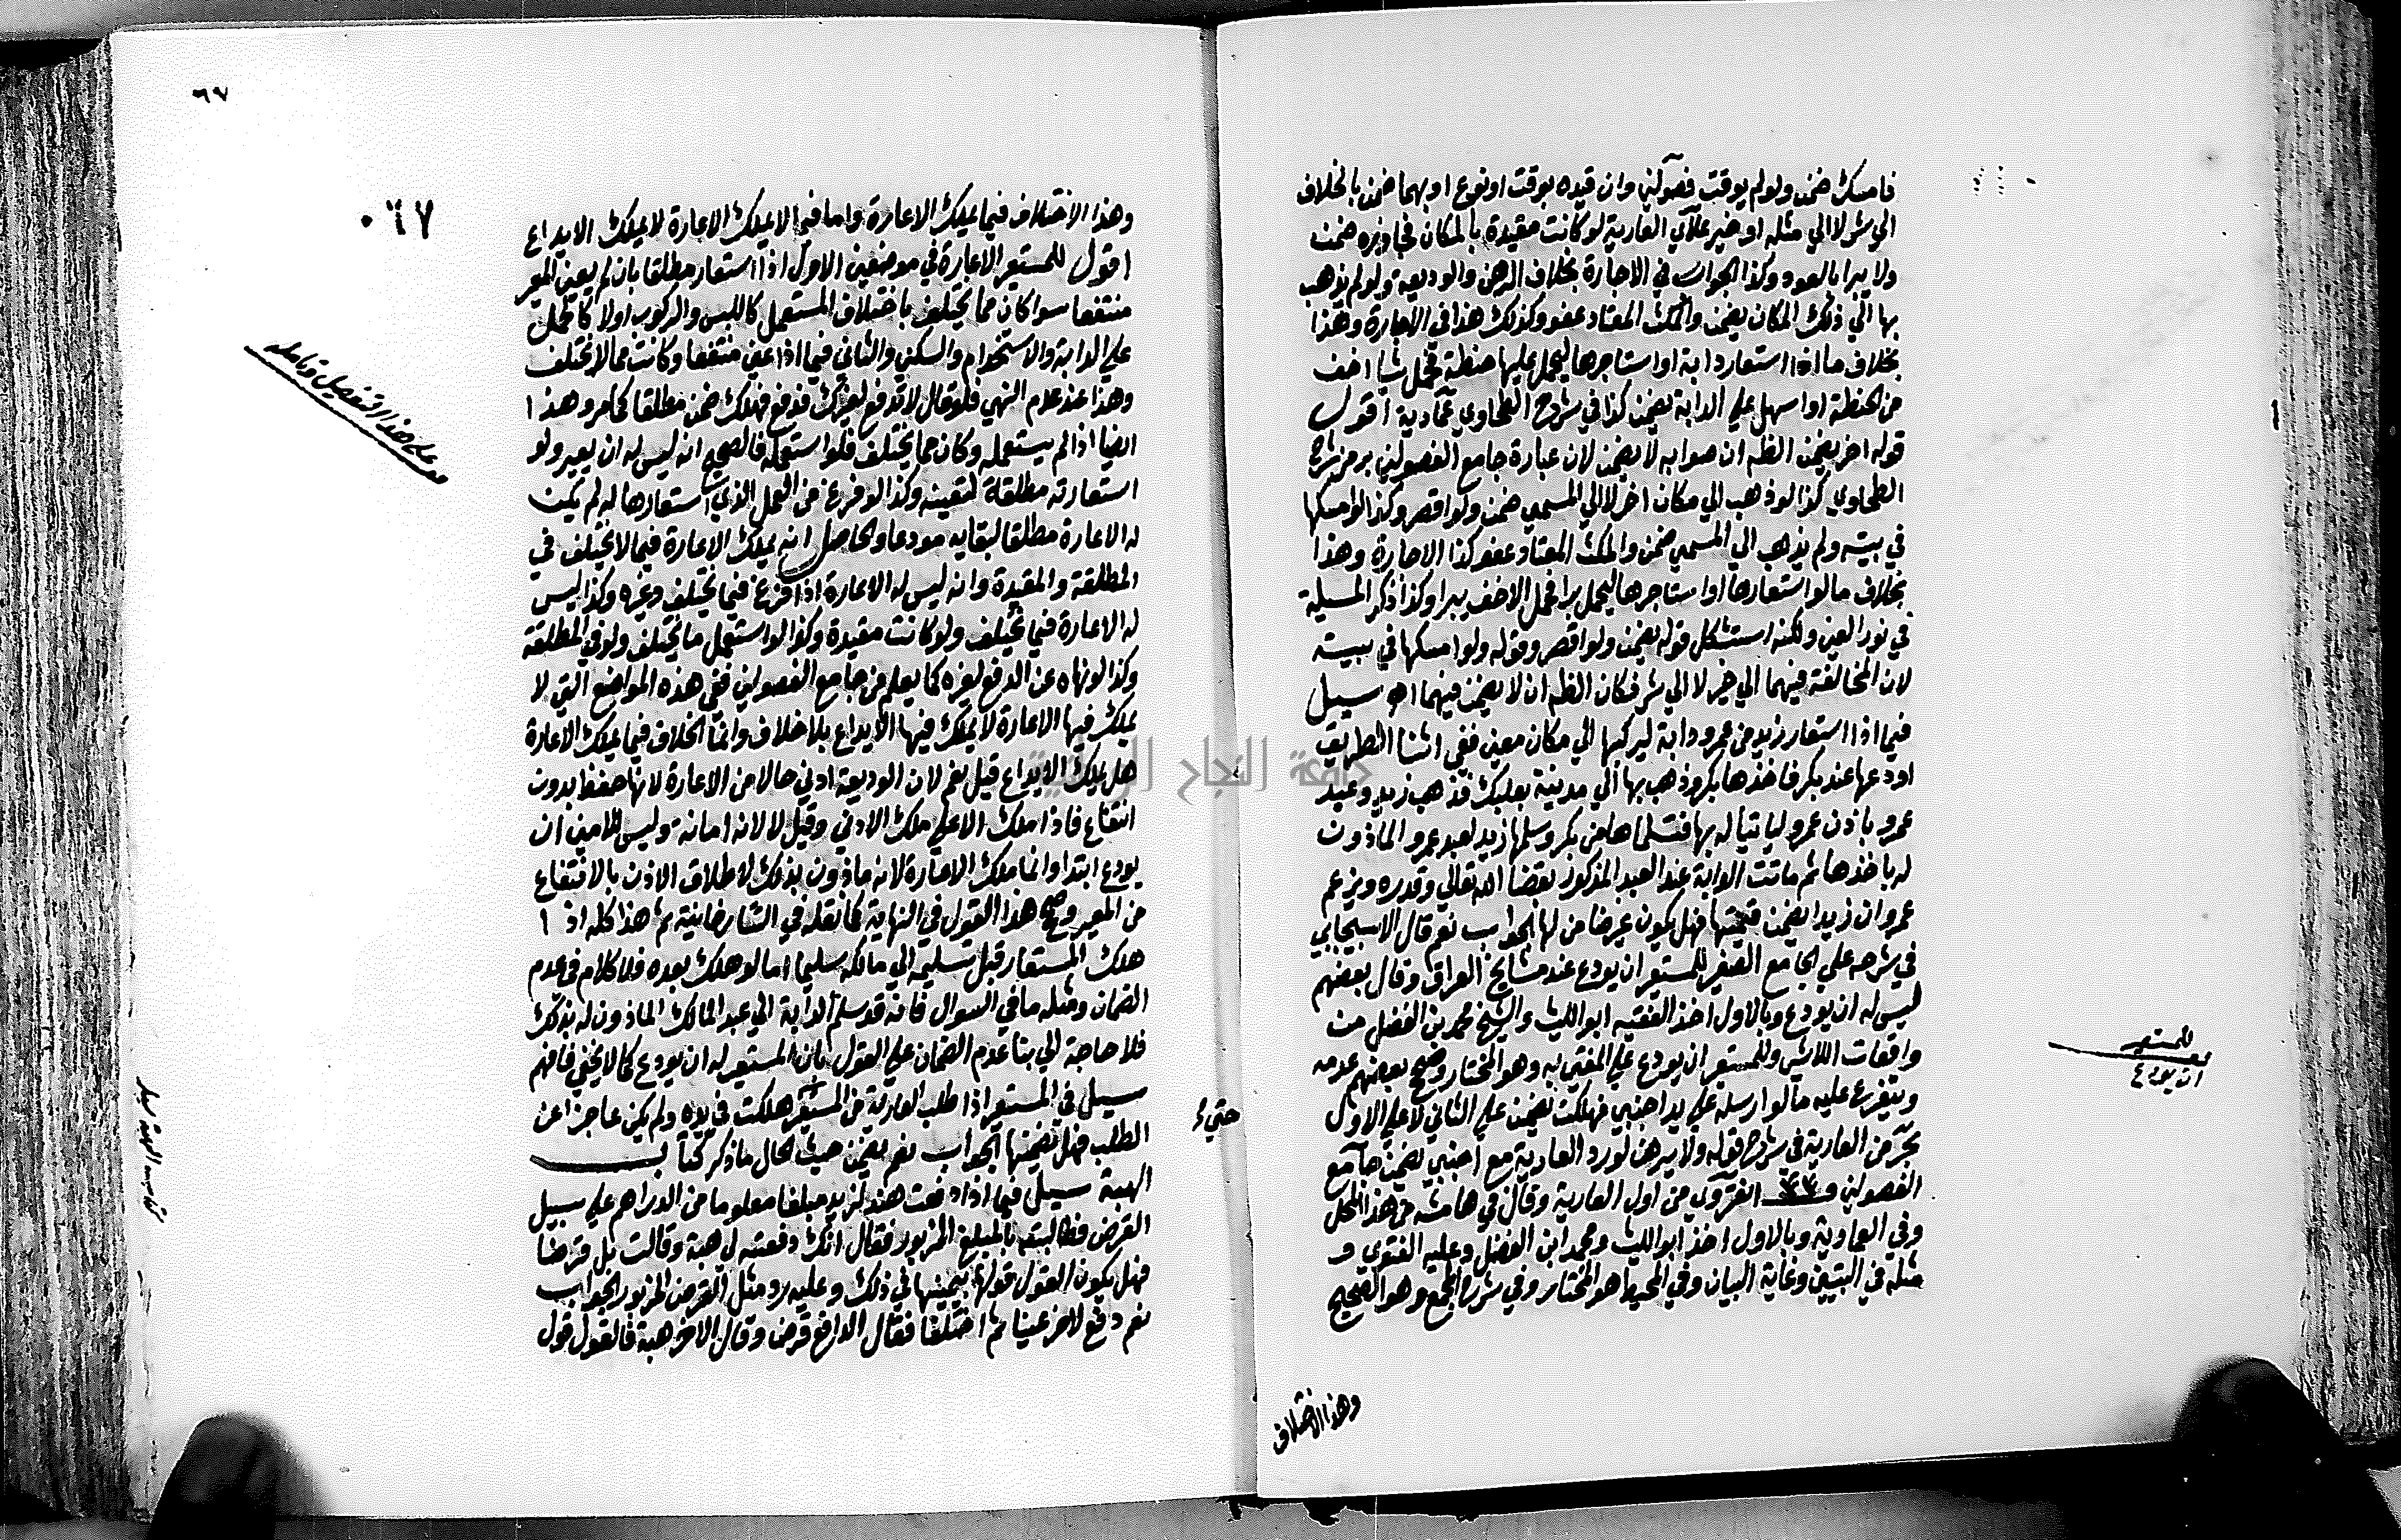 فامسك ضمن ولو لم يوقت فصولين وان قيده بوقت او نوع او بهما ضمن بالخلاف
الي شر لا الي مثله او خير علائي العارية لو كانت مقيدة بالمكان فجاوزه ضمن
ولا يبرا بالعود وكذا الجواب في الاجارة بخلاف الرهن والوديعة ولو لم يذهب
بها الي ذلك المكان يضمن والمكث المعتاد عفو وكذلك هذا في الاجارة وهذا
بخلاف ما اذا استعار دابة او استاجرها ليحمل عليها حنطة فحمل شيا اخف
من الحنطة او اسهل علي الدابة يضمن كذا في شرح الطحاوي عمادية اقول
قوله اخر يضمن الظه ان صوابه لا يضمن لان عبارة جامع الفصولين برمز شرح
الطحاوي كذا لو ذهب الي مكان اخر لا الي المسمي ضمن ولو اقصر وكذا لو امسكها
في بيته ولم يذهب الي المسمي ضمن والمكث المعتاد عفو كذا الاجارة وهذا
بخلاف ما لو استعارها او استاجرها ليحمل برا فحمل الاخف يبرا وكذا ذكر المسيلة
في نور العين ولكنه استشكل قوله يضمن ولو اقصر وقوله ولو امسكها في بيته
لان المخالفة فيهما الي خير لا الي شر فكان الظه ان لا يضمن فيهما اه سيل
فيما اذا استعار زيد من عمرو دابة ليركبها الي مكان معين ففي اثنا الطريق
اودعها عند بكر فاخذها بكر وذهب بها الي مدينة بعلبك فذهب زيد وعبد
عمرو باذن عمرو لياتيا له بها فتسلماها من بكر وسلمها زيد لعبد عمرو الماذون
له باخذها ثم ماتت الدابة عند العبد المذكور بقضا الله تعالي وقدره ويزعم
عمرو ان زيدا يضمن قيمتها فهل يكون غير ضامن لها الجواب نعم قال الاسبيجابي
في شرحه علي الجامع الصغير للمستعير ان يودع عند مشايخ العراق وقال بعضهم
ليس له ان يودع وبالاول اخذ الفقيه ابو الليث والشيخ محمد بن الفضل من
واقعات اللامشي وللمستعير ان يودع علي المفتي به وهو المختار وصحح بعضهم عدمه
ويتفرع عليه ما لو ارسله علي يد اجنبي فهلكت يضمن علي الثاني لا علي الاول
بحر من العارية في شرح قوله ولا يرهن لو رد العارية مع اجنبي يضمن جامع
الفصولين انقروي من اول العارية وقال في هامشه من هذا المحل
وفي العمادية وبالاول اخذ ابو الليث ومحمد ابن الفضل وعليه الفتوي و
مثله في التبيين وغاية البيان وفي المحيط هو المختار وفي شرح المجمع وهو الصحيح
للمستعير
ان يودع
وهذا الاختلاف
٦٧
٠٦٧
وهذا الاختلاف فيما يملك الاعارة واما فيما لا يملك الاعارة لا يملك الايداع
اقول للمستعير الاعارة في موضعين الاول اذا استعار مطلقا بان لم يعين المعير
منتفعا سوا كان مما يختلف باختلاف المستعمل كاللبس والركوب او لا كالحمل
علي الدابة والاستخدام والسكني والثاني فيما اذا عين منتفعا وكانت مما لا يختلف
وهذا عند عدم النهي فلو قال لا تدفع لغيرك فدفع فهلك ضمن مطلقا كما مر وهذا
ايضا اذا لم يستعمله وكان مما يختلف فلو استعمله فالصحيح انه ليس له ان يعير ولو
استعارته مطلقة لتعينه وكذا لو فرغ من العمل الذي استعارها له لم يكن
له الاعارة مطلقا لبقايه مودعا والحاصل انه يملك الاعارة فيما لا يختلف في
المطلقة والمقيدة وانه ليس له الاعارة اذا فرغ فيما يختلف وغيره وكذا ليس
له الاعارة فيما يختلف ولو كانت مقيدة وكذا لو استعمل ما يختلف ولو في المطلقة
وكذا لو نهاه عن الدفع لغيره كما يعلم من جامع الفصولين ففي هذه المواضع التي لا
يملك فيها الاعارة لا يملك فيها الايداع بلا خلاف وانما الخلاف فيما يملك الاعارة
هل يملك الايداع قيل نعم لان الوديعة ادني حالا من الاعارة لانها حفظ بدون
انتفاع فاذا ملك الاعلي ملك الادني وقيل لا لانه امانة وليس للامين ان
يودع ابتدا وانما ملك الاعارة لانه ماذون بذلك لاطلاق الاذن بالانتفاع
من المعير وصحح هذا القول في النهاية كما نقله في التتارخانية ثم هذا كله اذا
هلك المستعار قبل تسليمه الي مالكه سليما اما لو هلك بعده فلا كلام في عدم
الضمان ومثله ما في السوال فانه قد سلم الدابة الي عبد المالك الماذون له بذلك
فلا حاجة الي بنا عدم الضمان علي القول بان المستعير له ان يودع كما لا يخفي فافهم
سيل في المستعير اذا طلب العارية من المستعير هلكت في يده ولم يكن عاجزا عن
الطلب فهل يضمنها الجواب نعم يضمن حيث الحال ما ذكر كتاب
الهبة سيل فيما اذا دفعت هند لزيد مبلغا معلوما من الدراهم علي سبيل
القرض فطالبته بالمبلغ المزبور فقال انك دفعتيه لي هبة وقالت بل قرضا
فهل يكون القول قولها بيمينها في ذلك وعليه رد مثل القرض المزبور الجواب
نعم دفع لاخر عينا ثم اختلفا فقال الدافع قرض وقال الاخر هبة فالقول قول
علي هذا التفصيل وتامله
حتي
جامعة النجاح الوطنية